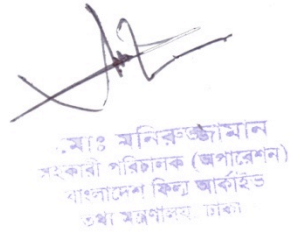 মোঃ মনিরুজ্জামান
সহকারী পরিচালক (অপারেশন)
বাংলাদেশ ফিল্ম আর্কাইভ
তথ্য মন্ত্রণালয়, ঢাকা